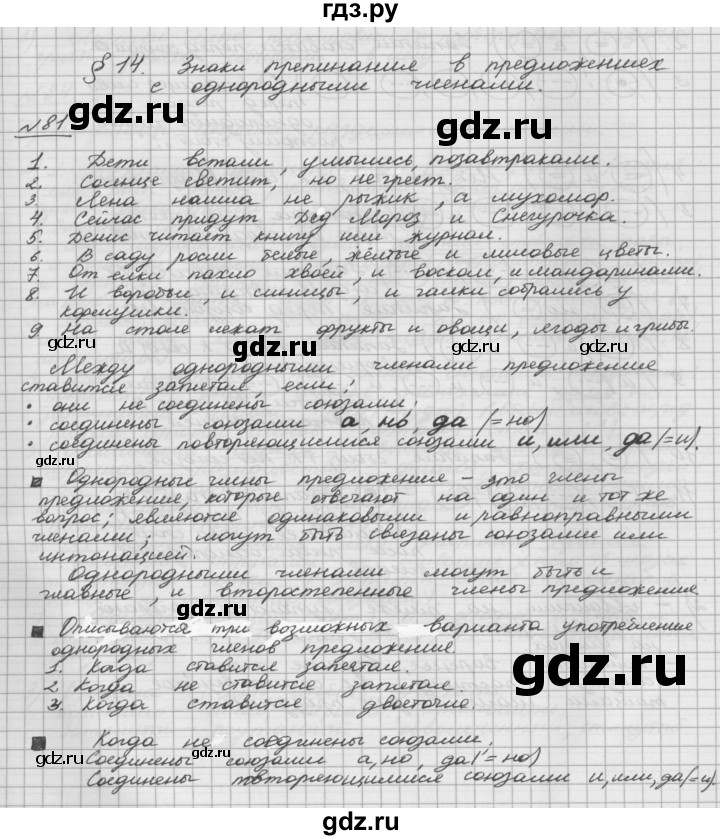 гдз.ру
§ 14. Знаки препинания в предложениях
с однородными членами.
№81
1. Дети встали, умылись, позавтракали.
2. Солнце светит, но не греет.
3 Лена нашла не рыжик, а мухомор.
4. Сейчас придут Дед Мороз и Снегурочка.
5. Денис читает книгу или журнал.
6. В саду росли белые, жёлтые и лиловые цветы.
7. От ёлки пахло хвоей, и воском, и мандаринами.
8. И воробьи, и синицы, и галки собрались у
кормушки.
9 На столе лежат фрукты и овощи, ягоды и грибы.
Между однородными членами предложения
ставится запятая, если:
• они не соединены союзами;
• соединены союзами а, но, да (=но)
• соединены повторяющимися союзами и, или, да(=и).
Однородные члены предложения – это члены
предложения, которые отвечают на один и тот же
вопрос; являются одинаковыми и равноправными
членами; могут быть связаны союзами или
интонацией.
Однородными членами могут быть и
главные, и второстепенные члены предложения
Описываются три возможных варианта употребления
однородных членов предложения
1. Когда ставится запятая.
2 Когда не ставится запятая.
3. Когда ставится двоеточие.
Когда не соединены союзами.
Соединены союзами а, но, да(=но)
Соединены повторяющимися союзами и, или, да(=и).
gdz.ru
gdz.ru
gdz.ru
gdz.ru
gdz.ru
gdz.ru
gdz.ru
gdz.ru
gdz.ru
gdz.ru
gdz.ru